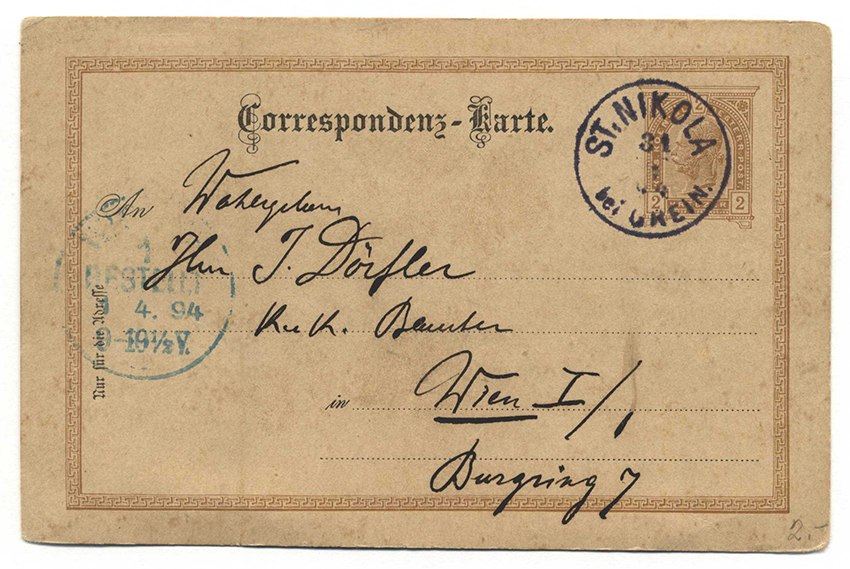 Correspondenz-Karte.
ST. NIKOLA
31
bei GREIN.
2 2
An Wohlgeboren
Hrn J. Dörfler
K. u. K. Beamter
in Wien I/1
Burgring 7
Nur für die Adresse
1
BESTELLT
4. 94
2.-